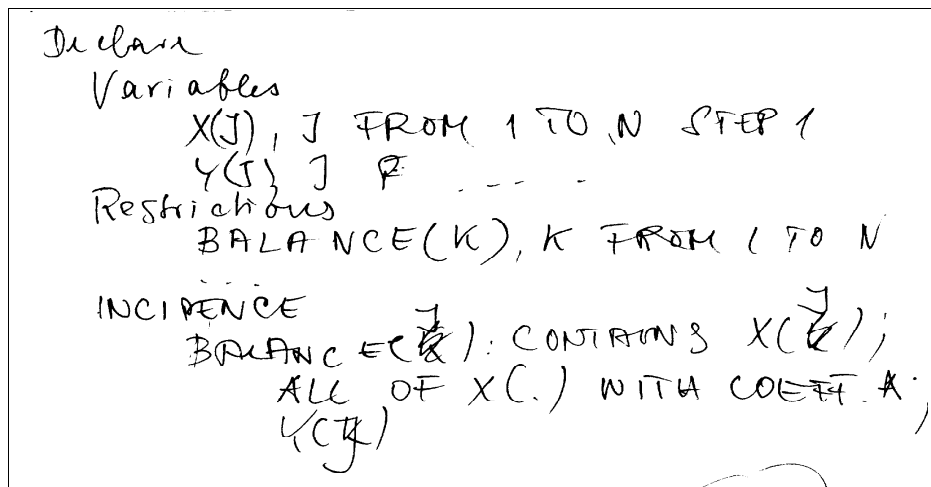 Declare
Variables
X(J), J FROM 1 TO N STEP 1
Y(J), J F . . . . .
Restrictions
BALANCE(K), K FROM 1 TO N
. . . .
INCIDENCE
BALANCE(J): CONTAINS X(J);
ALL OF X(.) WITH COEFF. A;
Y(J)